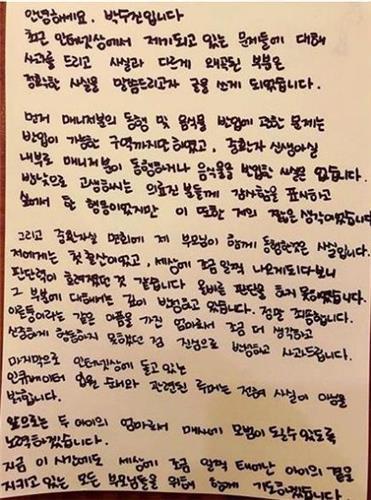 안녕하세요. 박수진입니다
최근 인터넷상에서 제기되고 있는 문제들에 대해
사과를 드리고 사실과 다르게 왜곡된 부분은
정확한 사실을 말씀드리고자 글을 쓰게 되었습니다.
먼저 매니저분의 동행 및 음식물 반입에 관한 문제는
반입이 가능한 구역까지만 하였고, 중환자 신생아실
내부로 매니저분이 동행하거나 음식물을 반입한 사실은 없습니다.
밤낮으로 고생하시는 의료진 분들께 감사함을 표시하고
싶어서 한 행동이었지만 이 또한 저의 짧은 생각이었습니다
그리고 중환자실 면회에 제 부모님이 함께 동행한것은 사실입니다.
저에게는 첫 출산이었고, 세상에 조금 일찍 나오게되다보니
판단력이 흐려졌던 것 같습니다. 올바른 판단을 하지 못하였습니다
그 부분에 대해서는 깊이 반성하고 있습니다. 정말 죄송합니다.
이른둥이라는 같은 아픔을 가진 엄마로서 조금 더 생각하고
신중하게 행동하지 못했던 점 진심으로 반성하고 사과드립니다.
마지막으로 인터넷상에 돌고 있는
인큐베이터 입원 순서와 관련된 루머는 전혀 사실이 아님을
밝힙니다.
앞으로는 두 아이의 엄마로서 매사에 모범이 될수 있도록
노력하겠습니다.
지금 이 시간에도 세상에 조금 일찍 태어난 아이의 곁을
지키고 있는 모든 부모님들을 위해 함께 기도하겠습니다.